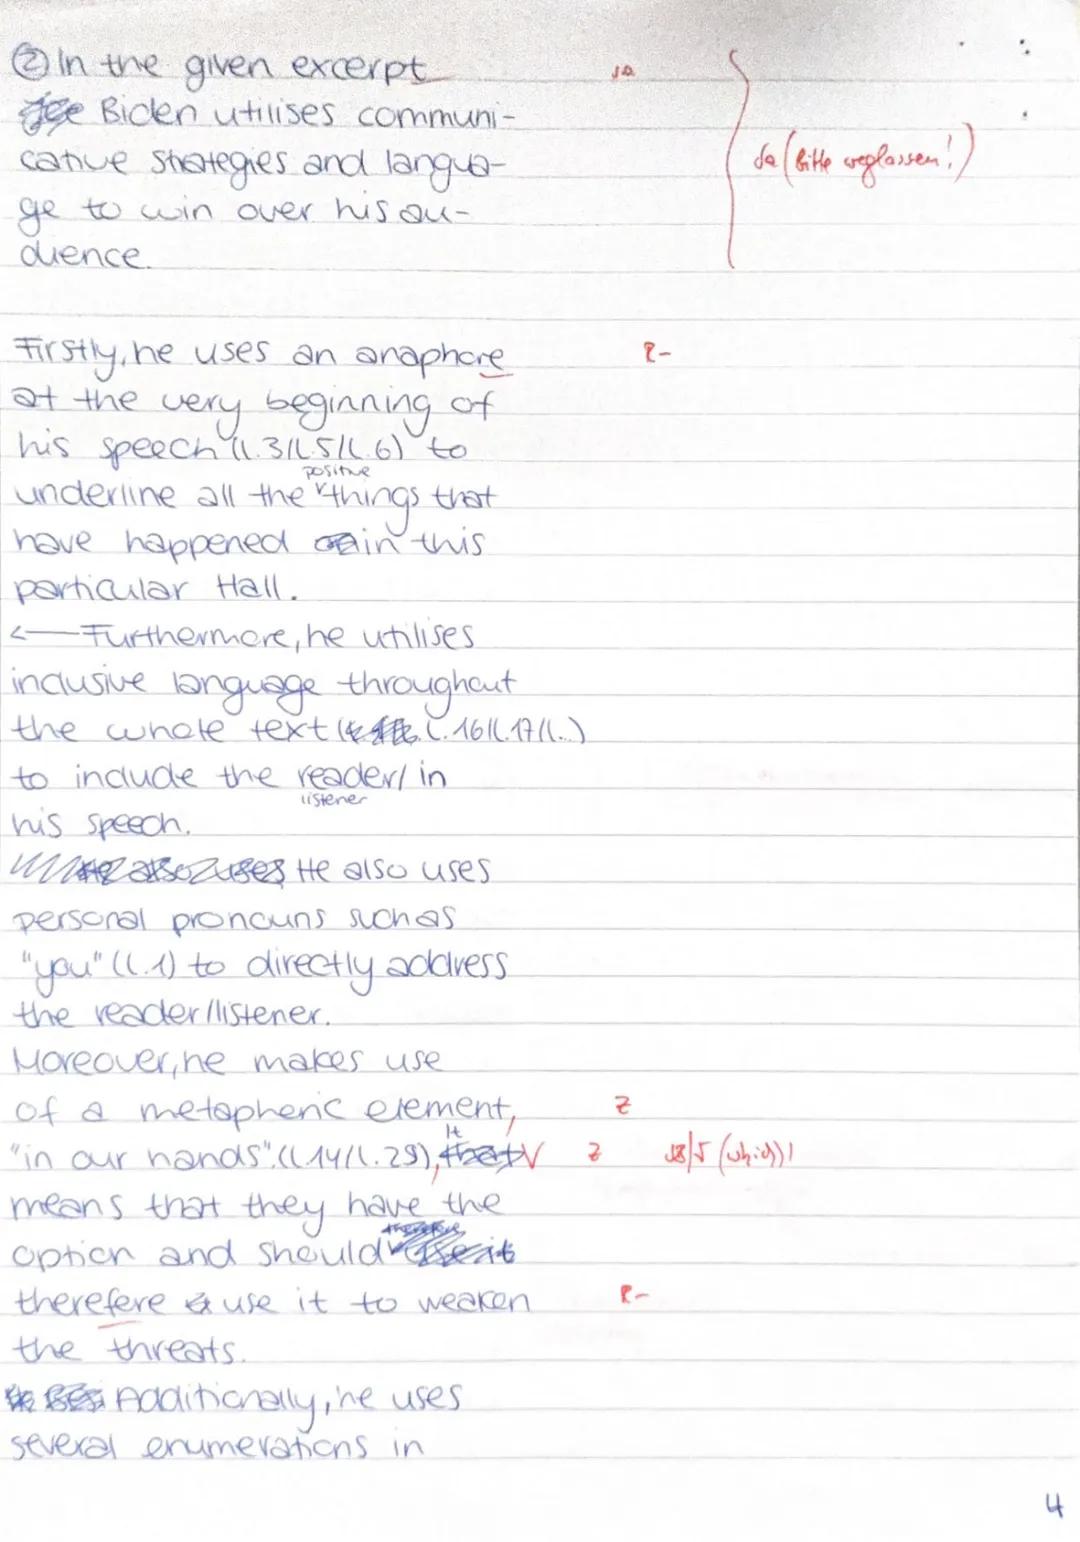 ② In the given excerpt
Biden utilises communi-
cative strategies and langua-
ge to win over his au-
dience.
Sa (Bitte weglassen!)
Firstly, he uses an anaphore R-
at the very beginning of
his speech (l.3/l.5/l.6) to
positive
underline all the things that
have happened in this
particular Hall.
<— Furthermore, he utilises
inclusive language throughout
the whole text (l.16/l.17/l...)
to include the reader/ in
listener
his speech.
He also uses
personal pronouns such as
"you" (l.1) to directly address
the reader/listener.
Moreover, he makes use
of a metapheric element, Z
It
"in our hands" (l.14/l.29), that V Z (which)!
means that they have the
therefore
option and should use it
therefere use it to weaken R-
the threats.
Additionally, he uses
several enumerations in
4